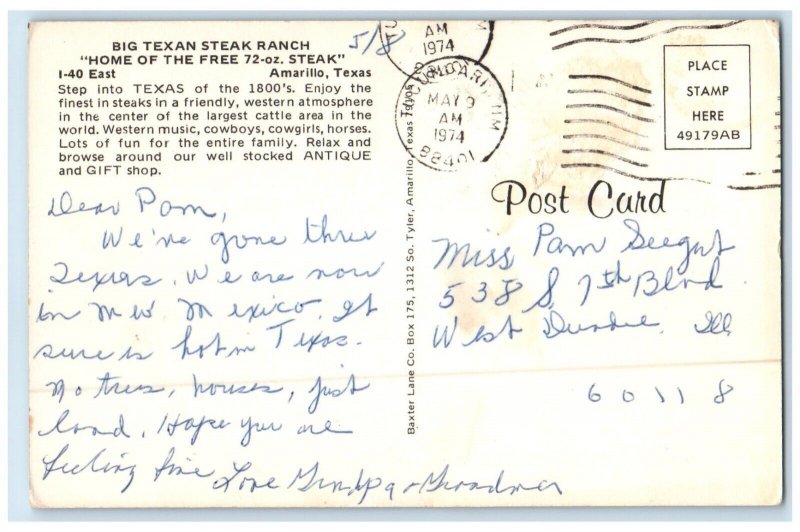 BIG TEXAN STEAK RANCH
"HOME OF THE FREE 72-oz. STEAK"
I-40 East Amarillo, Texas
Step into TEXAS of the 1800's. Enjoy the
finest in steaks in a friendly, western atmosphere
in the center of the largest cattle area in the
world. Western music, cowboys, cowgirls, horses.
Lots of fun for the entire family. Relax and
browse around our well stocked ANTIQUE
and GIFT shop.
5/8
Dear Pam,
We've gone thru
Texas. We are now
in New Mexico. It
sure is hot in Texas.
No trees, houses, just
land. Hope you are
feeling fine
Love Grndpa + Grandma
Baxter Lane Co. Box 175, 1312 So. Tyler, Amarillo, Texas
AM
1974
TUCUMCARI NM
MAY 9
AM
1974
88401
PLACE
STAMP
HERE
49179AB
Post Card
Miss Pam
538 S. 7th Blvd.
West Dundee, Ill
60118